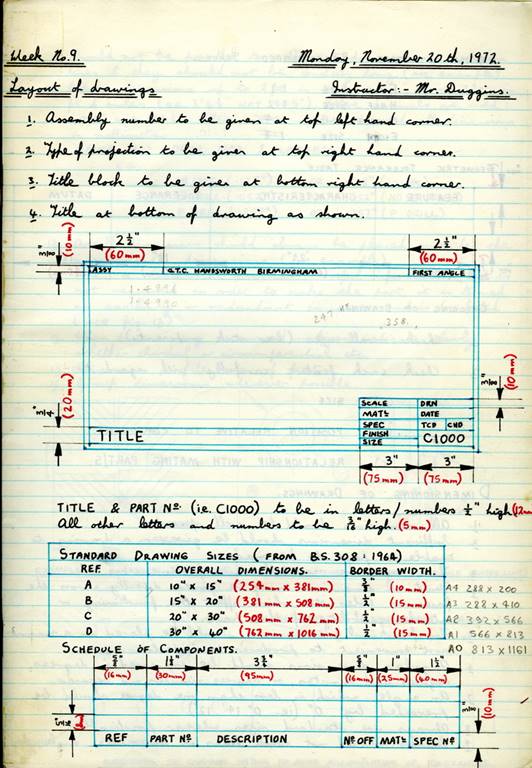 Week No.9. Monday, November 20th, 1972.
Layout of drawings Instructor:- Mr. Duggins.
1. Assembly number to be given at top left hand corner.
2. Type of projection to be given at top right hand corner.
3. Title block to be given at bottom right hand corner.
4. Title at bottom of drawing as shown.
2½" 2½"
(60mm) (60mm)
3/8" (10mm)
ASSY G.T.C. HANDSWORTH BIRMINGHAM FIRST ANGLE
1.4996
1.4990
.358.
3/8" (10mm)
SCALE DRN
MATL DATE
SPEC TCD CHD
FINISH
SIZE C1000
3/4" (20mm)
TITLE
3" 3"
(75mm) (75mm)
TITLE & PART NO. (i.e. C1000) to be in letters/numbers ½" high (12mm
All other letters and numbers to be 3/16" high. (5mm)
STANDARD DRAWING SIZES (FROM B.S. 308 : 1964)
REF. OVERALL DIMENSIONS. BORDER WIDTH.
A 10" x 15" (254mm x 381mm) 3/8" (10mm) A4 288 x 200
B 15" x 20" (381mm x 508mm) ½" (15mm) A3 288 x 410
C 20" x 30" (508mm x 762mm) ½" (15mm) A2 392 x 566
D 30" x 40" (762mm x 1016mm) ½" (15mm) A1 566 x 813
A0 813 x 1161
SCHEDULE OF COMPONENTS.
5/8" 1¼" 3¾" 5/8" 1" 1½"
(16mm) (30mm) (95mm) (16mm) (25mm) (40mm)
3/8" (10mm)
REF PART NO DESCRIPTION NO OFF MATL SPEC NO